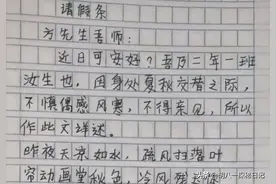 请假条
方先生吾师：
近日可安好？吾乃二年一班
汝生也，因身处夏秋交替之际，
不慎偶感风寒，不得亲见，所以
作此文详述。
昨夜天凉如水，疏风扫落叶
帘动画堂秋色，冷风